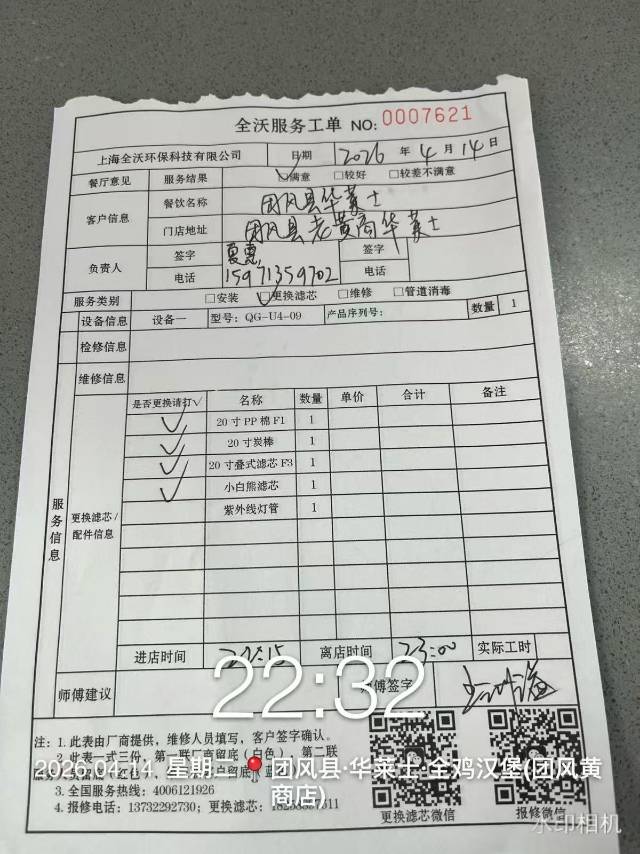 全沃服务工单 NO: 0007621
上海全沃环保科技有限公司 日期 2026 年 4 月 14 日
餐厅意见 服务结果 ☑满意 □较好 □较差不满意
客户信息 餐饮名称 团风县华莱士
门店地址 团风县老黄商华莱士
负责人 签字 签字
电话 15971359702 电话
服务类别 □安装 ☑更换滤芯 □维修 □管道消毒
设备信息 设备一 型号: QG-U4-09 产品序列号: 数量 1
检修信息
维修信息
服务信息
更换滤芯/配件信息
是否更换请打√ 名称 数量 单价 合计 备注
√ 20 寸 PP 棉 F1 1
√ 20 寸炭棒 1
√ 20 寸叠式滤芯 F3 1
√ 小白熊滤芯 1
紫外线灯管 1
进店时间 22:15 离店时间 23:00 实际工时
师傅建议 师傅签字
22:32
注: 1. 此表由厂商提供，维修人员填写，客户签字确认。
2. 此表一式三份，第一联厂商留底（白色），第二联
2026.04.14 星期二 团风县·华莱士·全鸡汉堡(团风黄商店)
3. 全国服务热线: 4006121926
4. 报修电话: 13732292730; 更换滤芯:
更换滤芯微信 报修微信
水印相机